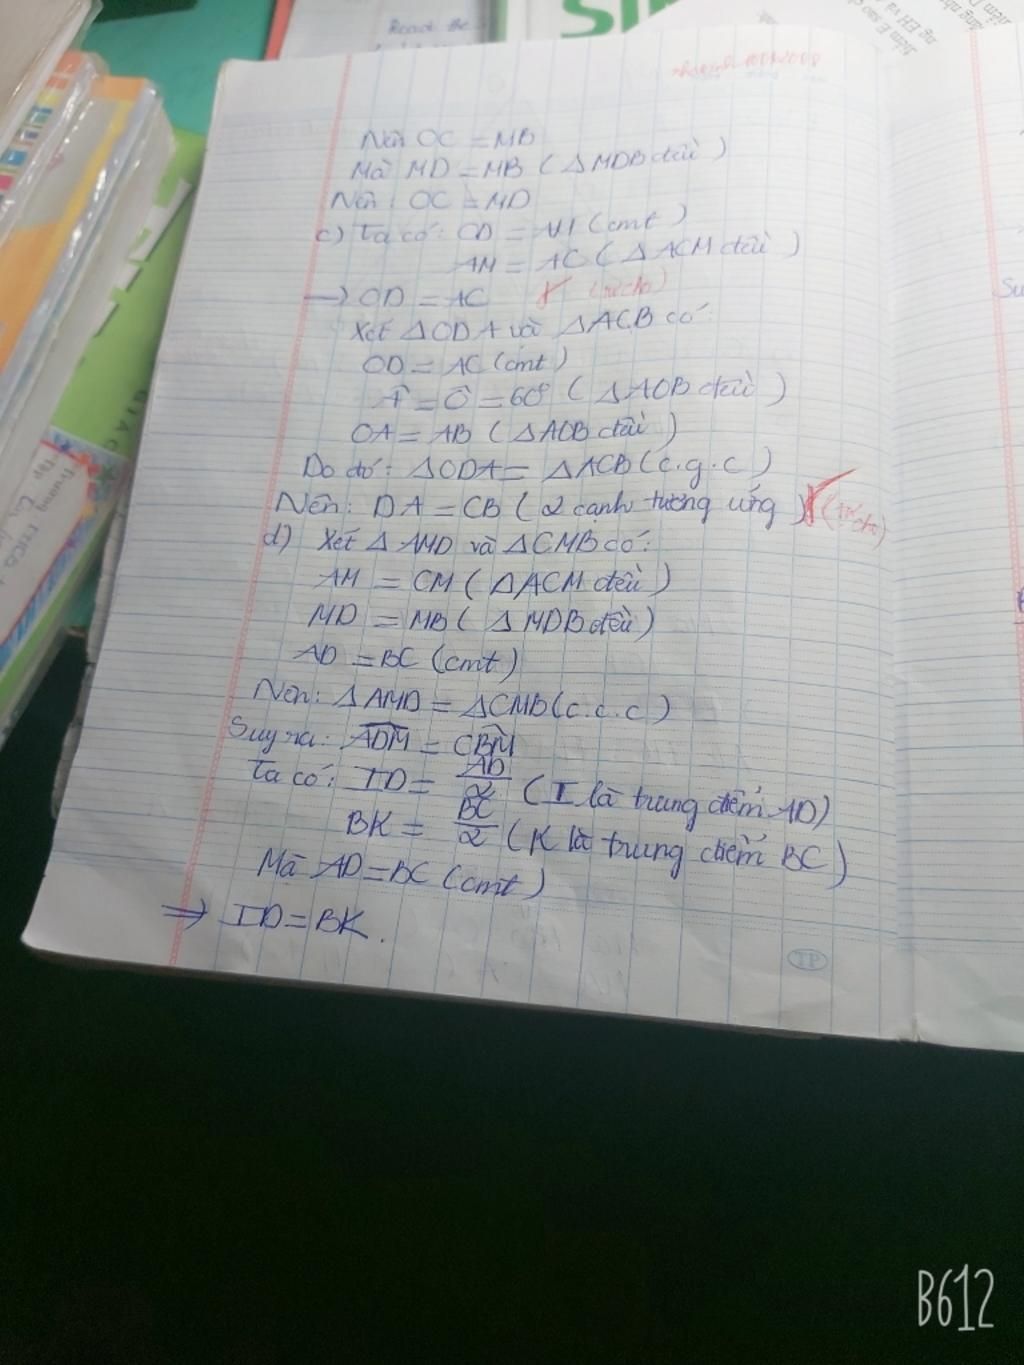 React the
Nên OC = MB
Mà MD = MB ( Δ MDB đều )
Nên : OC = MD
c) Ta có : OD = AM (cmt )
AM = AC ( Δ ACM đều )
→ OD = AC
Xét Δ ODA và Δ ACB có :
OD = AC (cmt )
Â = Ô = 60° ( Δ AOB đều )
OA = AB ( Δ AOB đều )
Do đó : Δ ODA = Δ ACB ( c.g.c )
Nên : DA = CB ( 2 cạnh tương ứng )
d) Xét Δ AMD và Δ CMB có :
AM = CM ( Δ ACM đều )
MD = MB ( Δ MDB đều )
AD = BC (cmt )
Nên : Δ AMD = Δ CMB ( c.c.c )
Suy ra : ADM = CBM
Ta có : ID = AD/2 ( I là trung điểm AD )
BK = BC/2 ( K là trung điểm BC )
Mà AD = BC (cmt )
⇒ ID = BK .
TP
B612